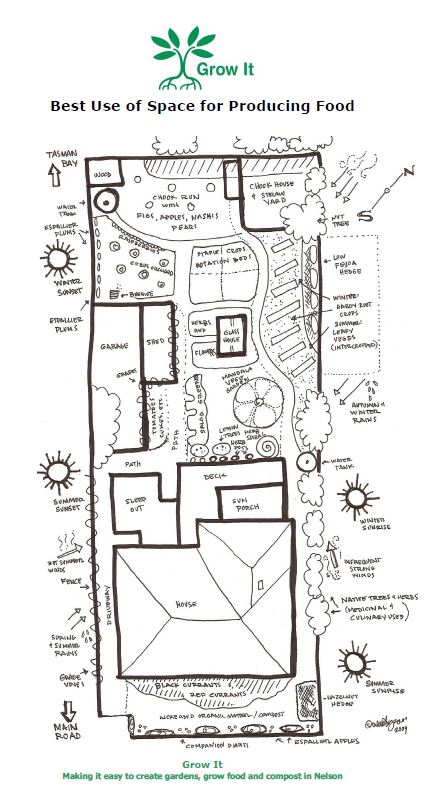 Grow It
Best Use of Space for Producing Food
TASMAN
BAY
WOOD
CHOOK RUN
WITH
FIGS, APPLES, NASHIS
PEARS
CHOOK HOUSE
&
STRAW
YARD
N
S
WATER
TANK
ESPALLIER
PLUMS
NUT
TREE
WINTER
SUNSET
BEEHIVE
STAPLE CROPS
ROTATION BEDS
LOW
FEIJOA
HEDGE
WINTER:
HARDY ROOT
CROPS
SUMMER:
LEAFY
VEGES
(INTERCROPPED)
ESPALLIER
PLUMS
GARAGE
SHED
HERBS
AND
FLOWERS
GLASS
HOUSE
GRAPES
TOMATOES,
CUKES, ETC.
PATH
SALAD GREENS
MANDALA
VEGE
GARDEN
AUTUMN &
WINTER
RAINS
LEMON
TREES
HERB
POTS
HERB
SPIRAL
PATH
DECK
WATER
TANK
SUMMER
SUNSET
SLEEP
OUT
SUN
PORCH
WINTER
SUNRISE
HOT SUMMER
WINDS
INFREQUENT
STRONG
WINDS
FENCE
DRIVEWAY
HOUSE
NATIVE TREES & HERBS
(MEDICINAL &
CULINARY USES)
SPRING
& SUMMER
RAINS
GRAPE
VINES
SUMMER
SUNRISE
BLACK CURRANTS &
RED CURRANTS
HAZELNUT
HEDGE
MAIN
ROAD
INCREASED ORGANIC MATTER / COMPOST
2009
COMPANION PLANTS
ESPALLIER APPLES
Grow It
Making it easy to create gardens, grow food and compost in Nelson